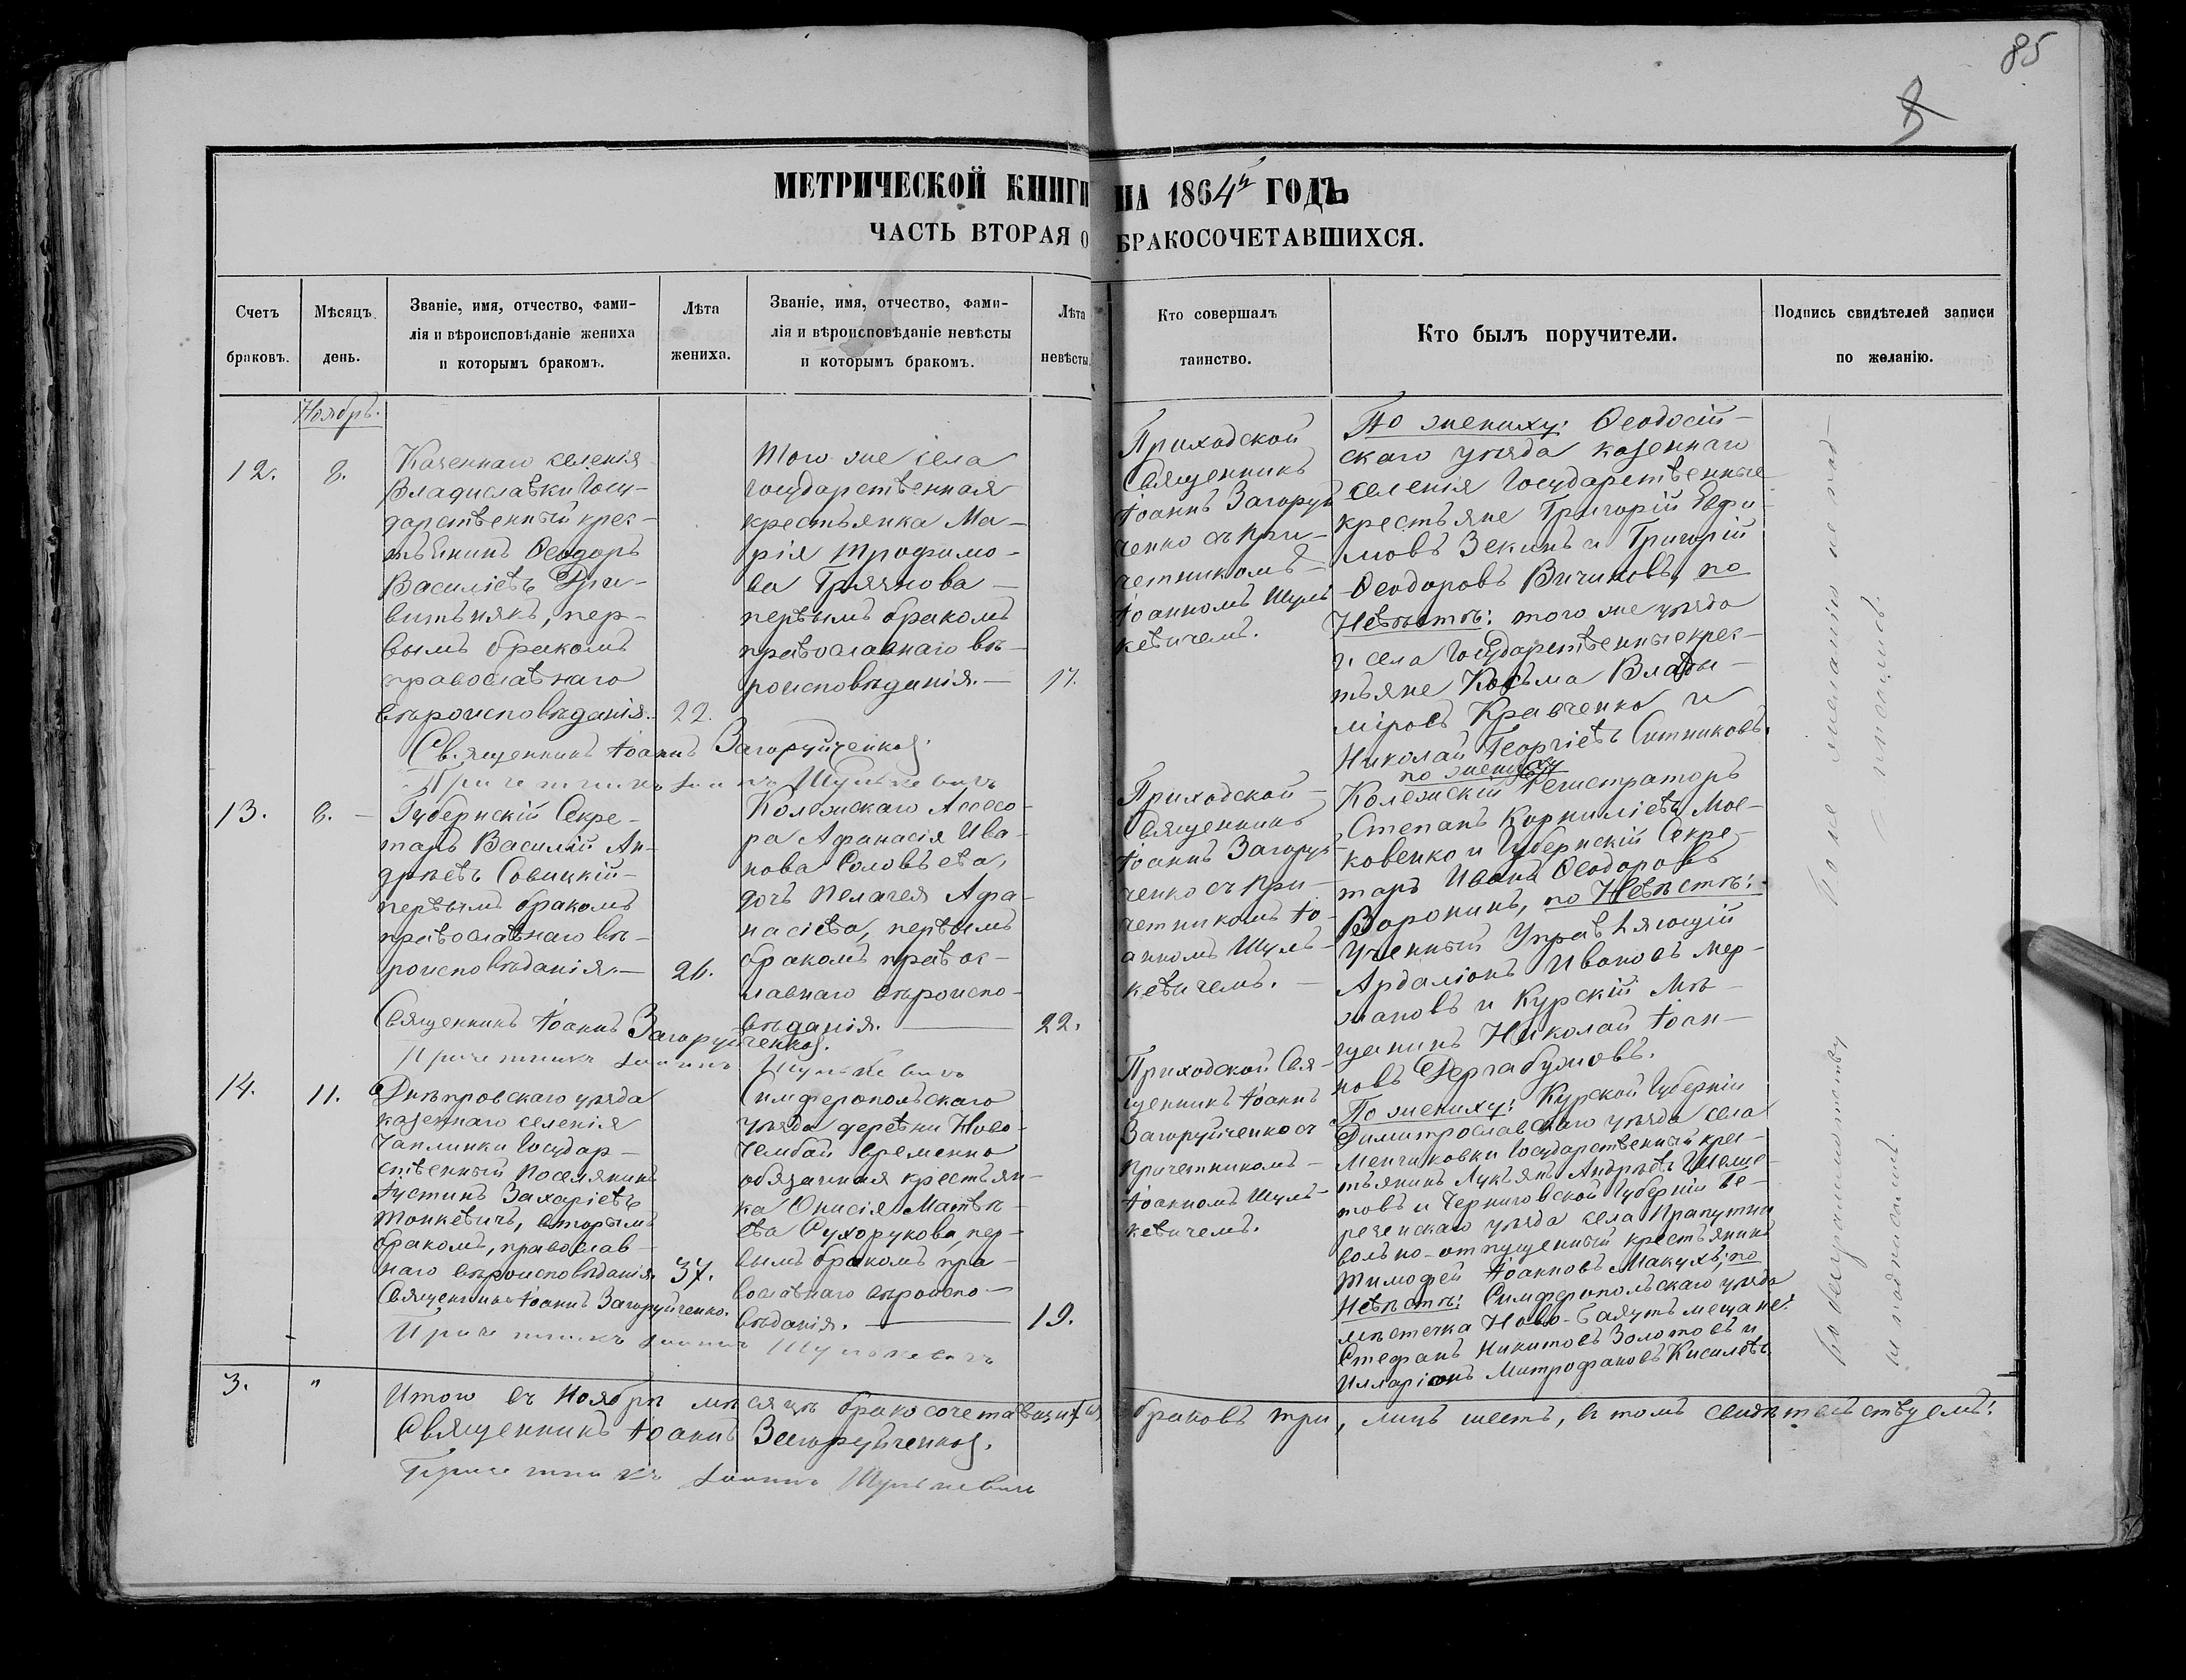 85
МЕТРИЧЕСКОЙ КНИГИ НА 1864й ГОДЪ
ЧАСТЬ ВТОРАЯ О БРАКОСОЧЕТАВШИХСЯ.
Счетъ
браковъ.
Мѣсяцъ
день.
Званіе, имя, отчество, фами-
лія и вѣроисповѣданіе жениха
и которымъ бракомъ.
Лѣта
жениха.
Званіе, имя, отчество, фами-
лія и вѣроисповѣданіе невѣсты
и которымъ бракомъ.
Лѣта
невѣсты.
Кто совершалъ
таинство.
Кто былъ поручители.
Подпись свидѣтелей записи
по желанію.
Ноябрь.
12.
8.
Казеннаго селенія
Владиславки Госу-
дарственный крес-
тьянинъ Ѳеодоръ
Василіевъ Дри-
витьнякъ, пер-
вымъ бракомъ
православнаго
вѣроисповѣданія.
22.
Того же села
Государственная
крестьянка Ма-
рія Трофимо-
ва Грязнова
первымъ бракомъ
православнаго вѣ-
роисповѣданія.—
17.
Приходской
Священникъ
Іоаннъ Загоруй
ченко съ при-
четникомъ
Іоанномъ Шуль
кевичемъ.
По жениху: Ѳеодосій-
скаго уѣзда казеннаго
селенія Государственные
крестьяне Григорій Евфи-
мовъ Зекинъ и Григорій
Ѳеодоровъ Вичиковъ, по
Невѣстѣ: того же уѣзда
и села Государственные крес-
тьяне Косьма Влади-
міровъ Кравченко и
Николай Георгіевъ Ситниковъ.
Священникъ Іоаннъ Загоруйченко.
Причетникъ Іоаннъ Шулькевичъ
13.
8.
Губернскій Секре-
тарь Василій Ан-
дрѣевъ Совицкій
первымъ бракомъ
православнаго вѣ-
роисповѣданія.—
26.
Колежскаго Ассесо-
ра Афанасія Ива-
нова Соловьева,
дочь Пелагея Афа-
насіева, первымъ
бракомъ правос-
лавнаго вѣроиспо-
вѣданія.
22.
Приходской
Священникъ
Іоаннъ Загоруй-
ченко съ при-
четникомъ Іо-
анномъ Шуль-
кевичемъ.
по жениху
Колежскій Регистраторъ
Степанъ Корниліевъ Мос-
ковенко и Губернскій Секре-
тарь Иванъ Ѳеодоровъ
Воронинъ, по Невѣстѣ:
Ученный Управляющій
Ардаліонъ Ивановъ Мер-
жановъ и Курскій Мѣ-
щанинъ Николай Іоан-
новъ Дергабузовъ.
Священникъ Іоаннъ Загоруйченко.
Причетникъ Іоаннъ Шулькевичъ
14.
11.
Днѣпровскаго уѣзда
казеннаго селенія
Чаплинки Государ-
ственный Поселянинъ
Іустинъ Захаріевъ
Тонкевичъ, вторымъ
бракомъ, православ-
наго вѣроисповѣданія.
37.
Симферопольскаго
уѣзда деревни Ново-
Чембай временно
обязанная крестьян-
ка Онисія Матвѣ-
ева Сухорукова, пер-
вымъ бракомъ пра-
вославнаго вѣроиспо-
вѣданія.
19.
Приходской Свя-
щенникъ Іоаннъ
Загоруйченко съ
причетникомъ
Іоанномъ Шуль-
кевичемъ.
По жениху: Курской Губерніи
Димитрославскаго уѣзда села
Менчиковки Государственный крес-
тьянинъ Лукьянъ Андрѣевъ Шелме-
товъ и Черниговской Губерніи Бе-
резенскаго уѣзда села Прапутни
вольно-отпущенный крестьянинъ
Тимофей Іоанновъ Макухъ; по
Невѣстѣ: Симферопольскаго уѣзда
мѣстечка Ново-Баяутъ мещане:
Стефанъ Никитовъ Золотовъ и
Илларіонъ Митрофановъ Киселевъ.
Священникъ Іоаннъ Загоруйченко.
Причетникъ Іоаннъ Шулькевичъ
По не желанію не под-
писались.
По безграмотству
не подписались.
3.
"
Итого въ Ноябрѣ мѣсяцѣ бракосочетавшихся браковъ три, лицъ шесть, въ томъ свидѣтельствуемъ:
Священникъ Іоаннъ Загоруйченко.
Причетникъ Іоаннъ Шулькевичъ